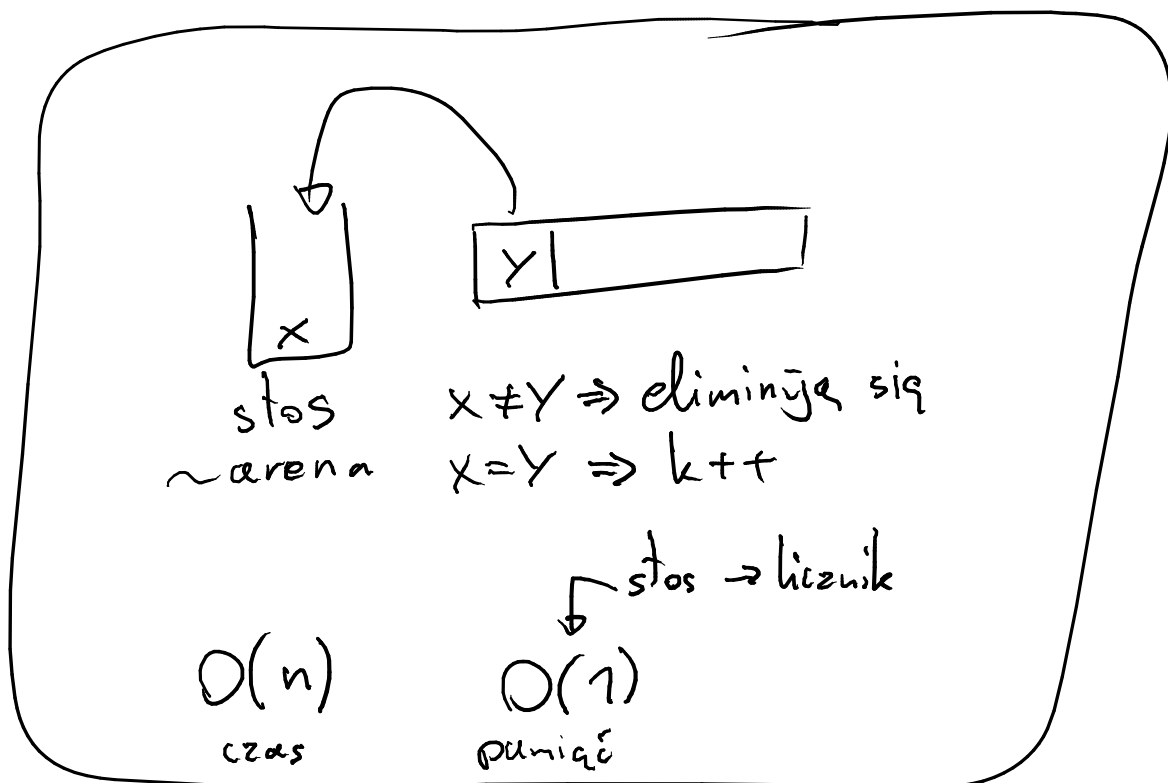 Y
X
stos
~arena
X ≠ Y ⇒ eliminują się
X = Y ⇒ k++
stos → licznik
O(n)
czas
O(1)
pamięć